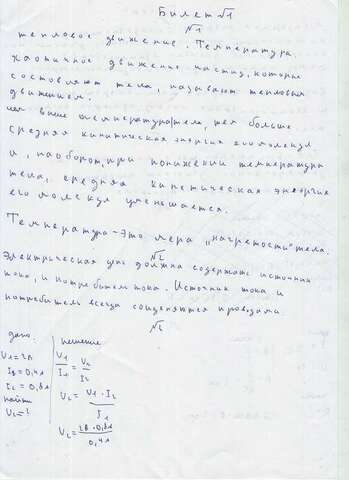 Билет №1
№1
тепловое движение. Температура.
хаотичное движение частиц, которые
составляют тела, называют тепловым
движением.
чем выше температура тела, тем больше
средняя кинитическая энергия его молекул
и, наоборот, при понижении температура
тела, средняя кинетическая энергия
его молекул уменьшается.
Температура-это мера „нагретости" тела.
№2
Электрическая цепь должна содержать источник
тока, и потребитель тока. Источник тока и
потребитель всегда соединяются проводами.
№2
дано: решение
U1=2В U1/I1 = U2/I2
I1=0,4А
I2=0,8А U2 = U1·I2/I1
найти
U2=? U2=2В·0,8А/0,4А